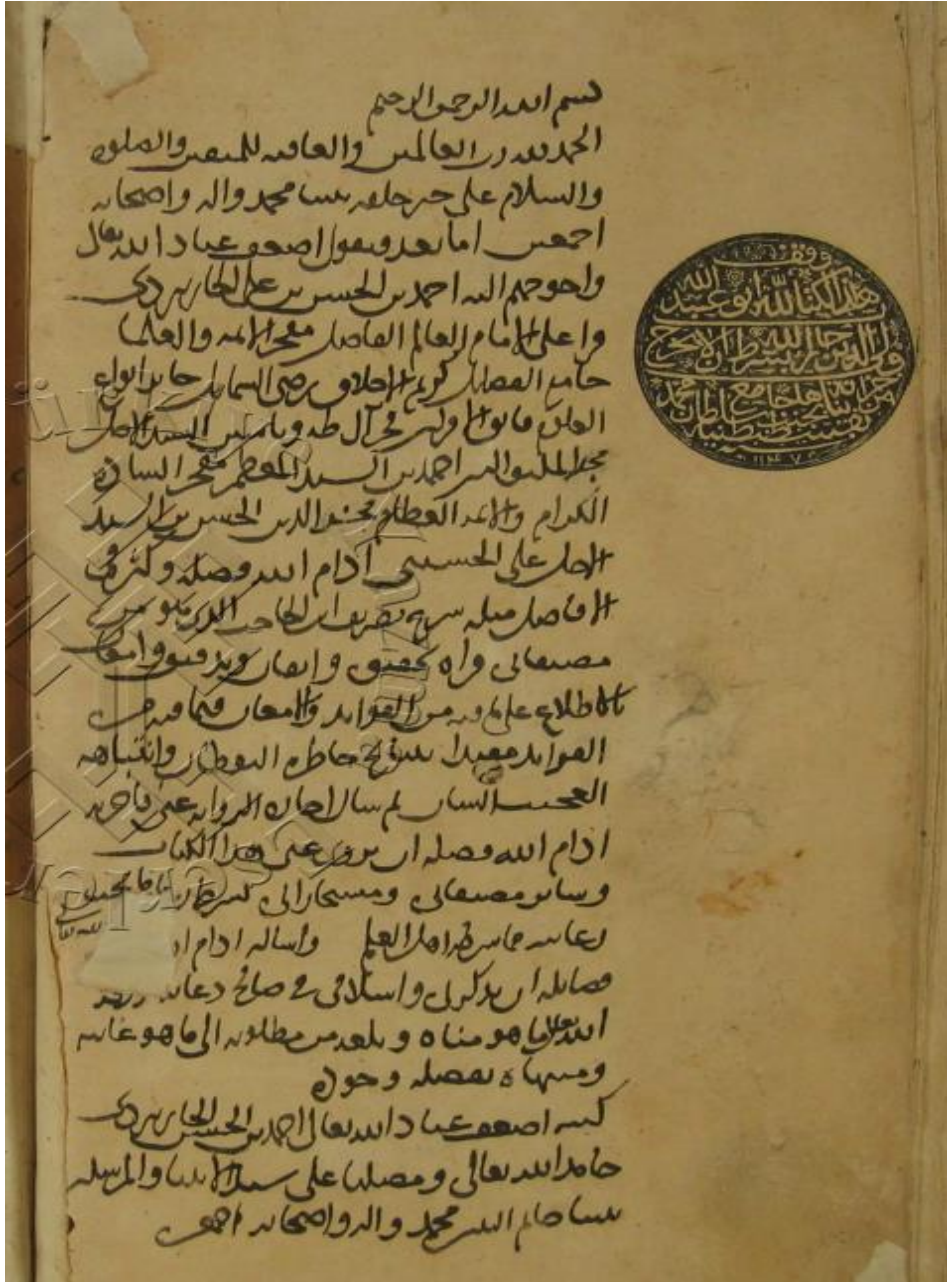 بسم الله الرحمن الرحيم
الحمد لله رب العالمين والعاقبه للمتقين والصلوه
والسلام على خير خلقه نبينا محمد واله واصحابه
اجمعين اما بعد فيقول اضعف عباد الله تعالى
واحوجهم اليه احمد بن الحسن بن علي الجاربردي
قرا على الامام العالم الفاضل مفخر الائمه والعلما
جامع الفضايل كريم الاخلاق رضي الشمايل حايز انواع
العلوم فخر آل طه وياسين السيد الاجل
مجد المله والدين احمد بن السيد المعظم مفخر الساده
الكرام والائمه العظام مجد الدين الحسن بن السيد
الاجل علي الحسيني ادام الله فضله وكثر في
الافاضل مثله شرح تصريف ابن الحاجب الذي هو من
مصنفاتي قراه تحقيق واتقان وتدقيق وامعان
بالاطلاع على ما فيه من الفوايد والامعان فيما فيه من
الفوايد مفيدا بنتايج خاطره اليقظان وانتباهه
العجيب الشان ثم سال اجازه الروايه عني فاجزت
ادام الله فضله ان يروي عني هذا الكتاب
وساير مصنفاتي ومستجازاتي بشرط
رعايه ما شرطه اهل العلم واساله ادام
فضايله ان يذكرني واسلافي في صالح دعائه
الله تعالى ما هو مناه وبلغه من مطلوبه الى ما هو غايته
ومنتهاه بفضله وجوده
كتبه اضعف عباد الله تعالى احمد بن الحسن الجاربردي
حامدا لله تعالى ومصليا على سيد الانبيا والمرسلين
نبينا خاتم النبيين محمد واله واصحابه اجمعين
وقف
هذا الكتاب لله ابو عبد الله
ولي الدين جار الله بشرط ان لا يخرج
من خزانة بناها بجامع سلطان محمد
بقسطنطينية